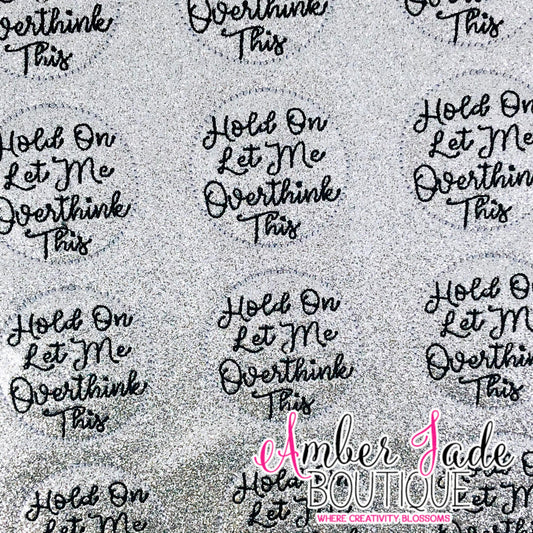 Overthink
This
Overthink
This
Overthink
This
Hold On
Let Me
Overthink
This
Hold On
Let Me
Overthink
This
Hold On
Let Me
Overthink
This
Hold On
Let Me
Overthink
This
Hold On
Let Me
Overthink
This
Hold O
Let M
Overthin
This
Hold On
Let Me
Hold On
Let Me
Let Me
Amber Jade
BOUTIQUE
WHERE CREATIVITY BLOSSOMS